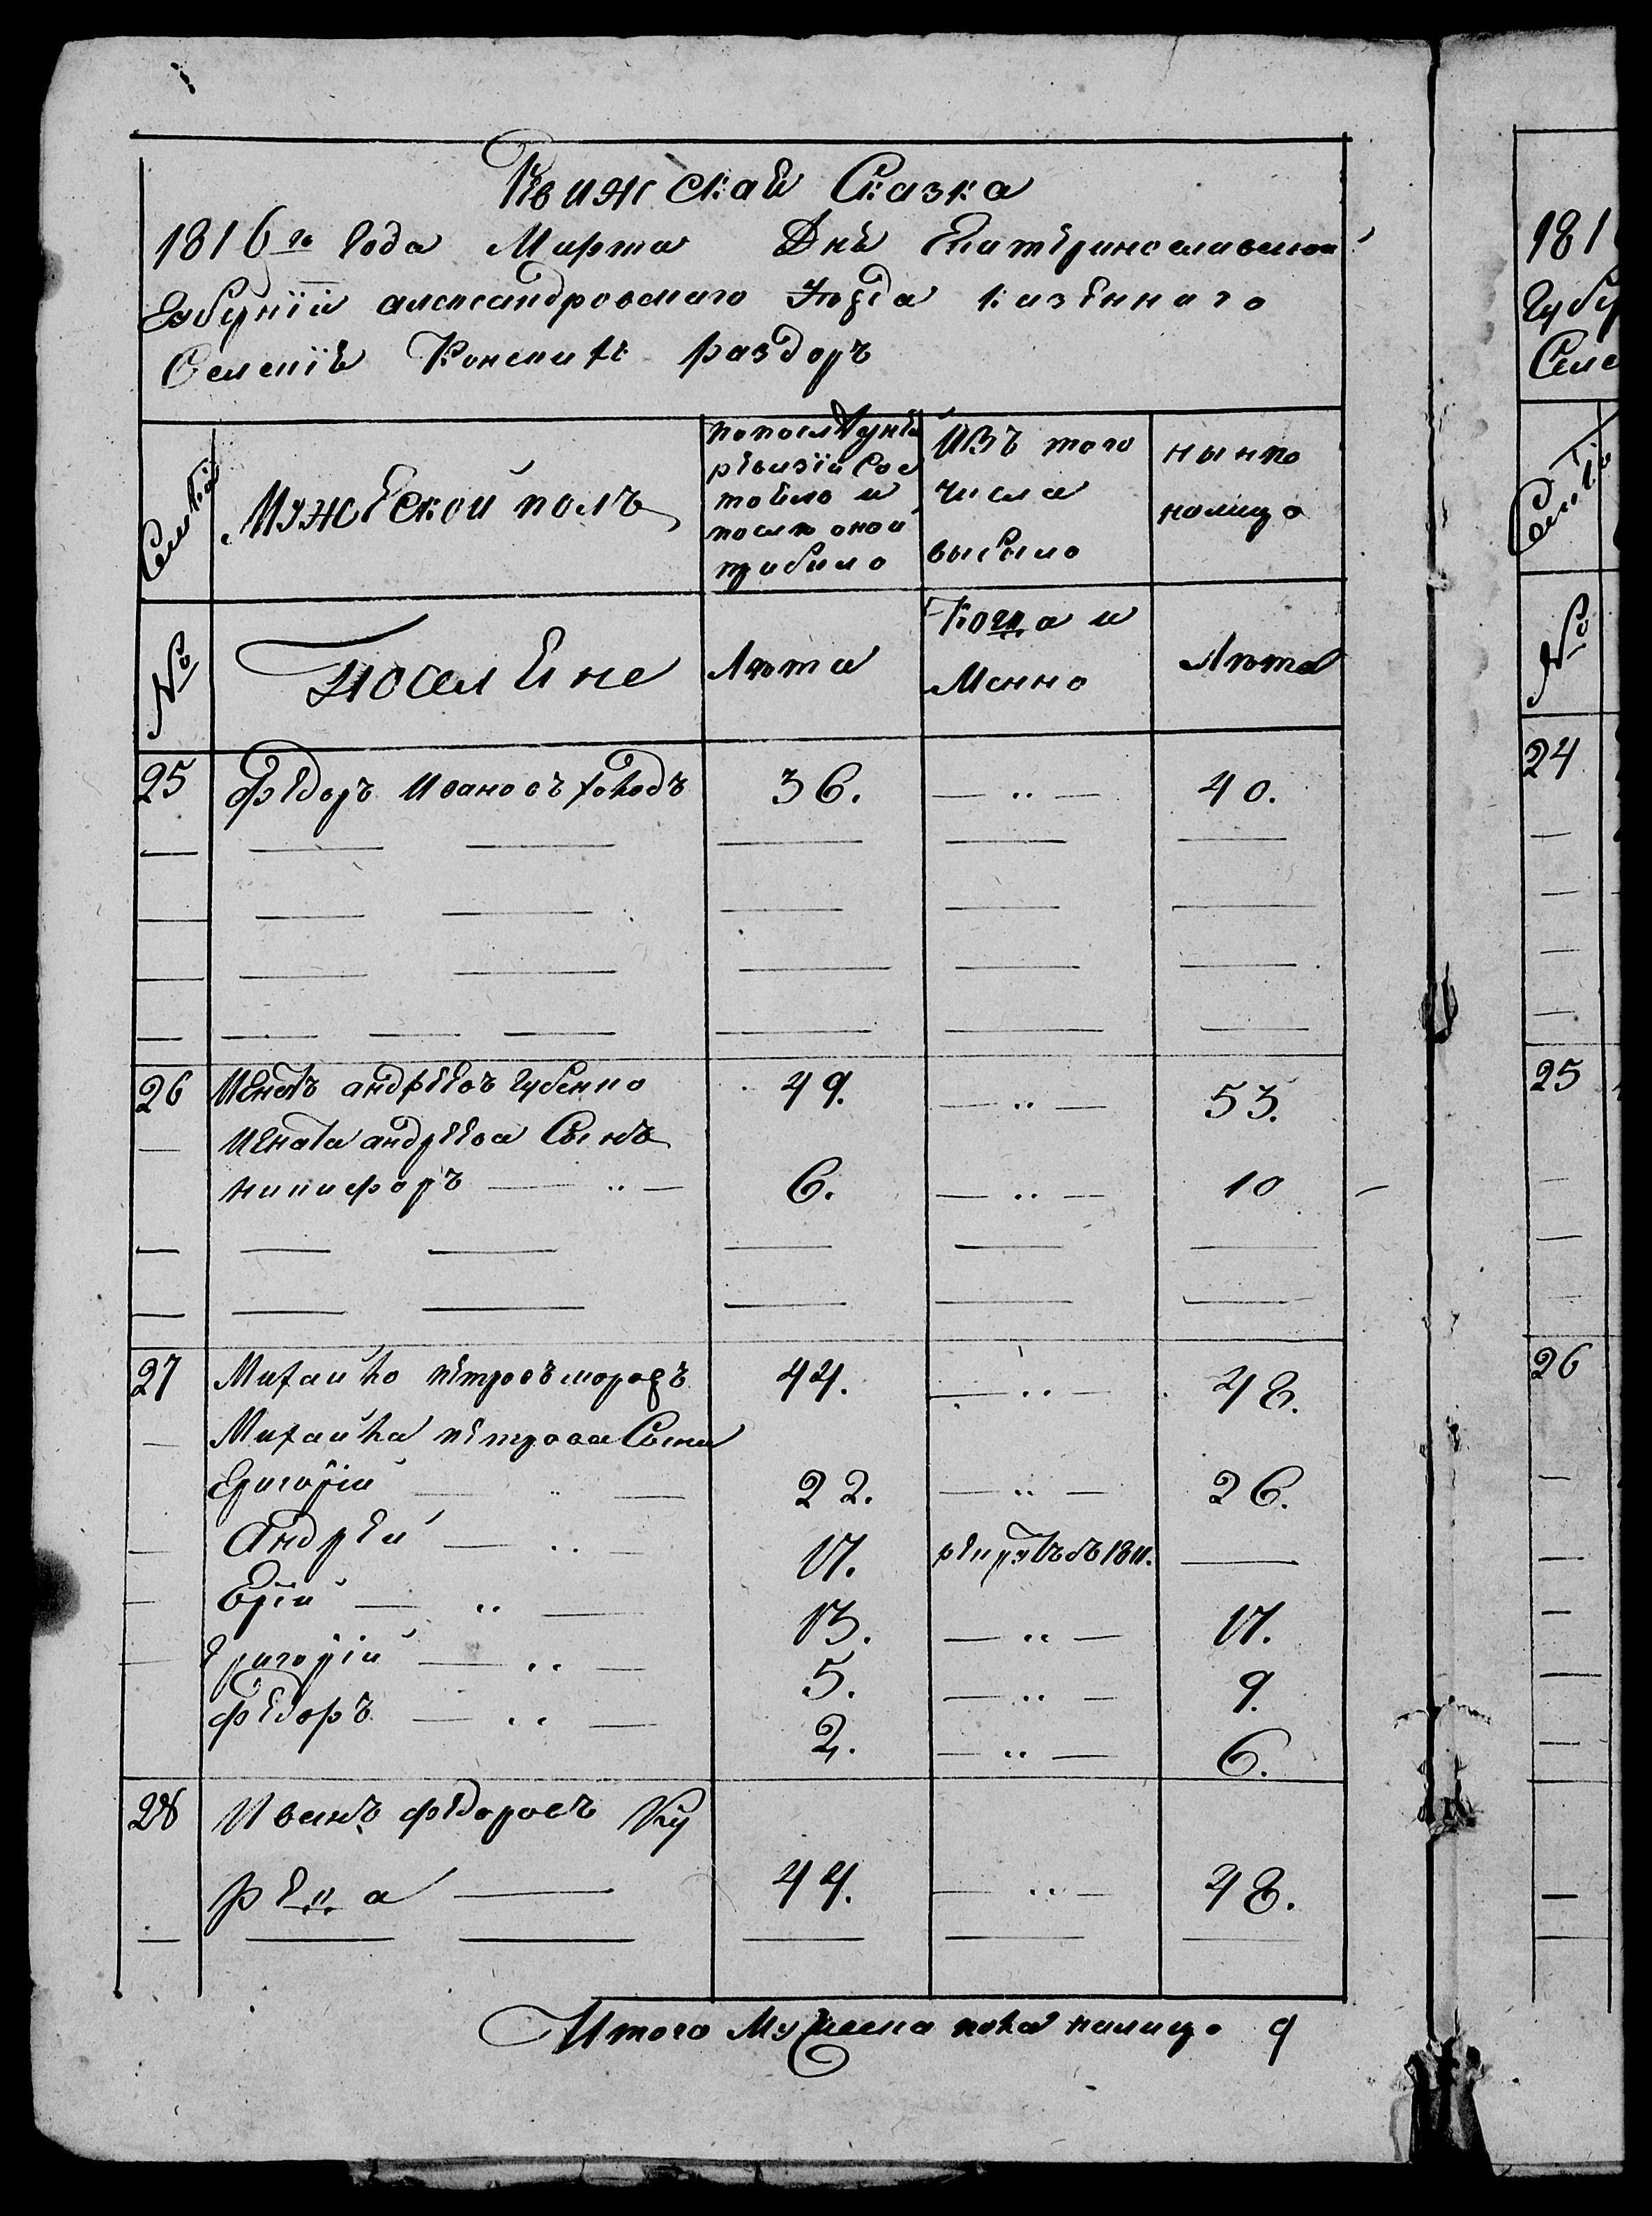 Ревижская Сказка
1816го Года Марта Дня Екатеринославской
Губернїи александровскаго уѣзда казенного
Селенїя Конских раздоръ
Семьи
Мужеской полъ
попоследней ревизїи Сос тояло и после оной прибыло
ИЗъ того числа выбыло
нынѣ налицо
№
поселяне
Лѣта
Когда именно
Лѣта
25 Федоръ Ивановъ Холодъ 36. — .. — 40.
26 Игнатъ андреевъ Губенко 49. — .. — 53.
Игната андреева Сынъ
никифоръ — .. — 6. — .. — 10
27 Михайло петровъ морозъ 44. — .. — 48.
Михайла петрова Сыны
Григорїй — .. — 22. — .. — 26.
Андрей — .. — 17. рекрутъ въ 1811. —
Юрїй — .. — 13. — .. — 17.
Григорїй — .. — 5. — .. — 9.
Федоръ — .. — 2. — .. — 6.
28 Иванъ Федоровъ Ку
река — 44. — .. — 48.
Итого Мужеска пола налицо 9
181
Губер
Селе
Семьи
№
24
25
26